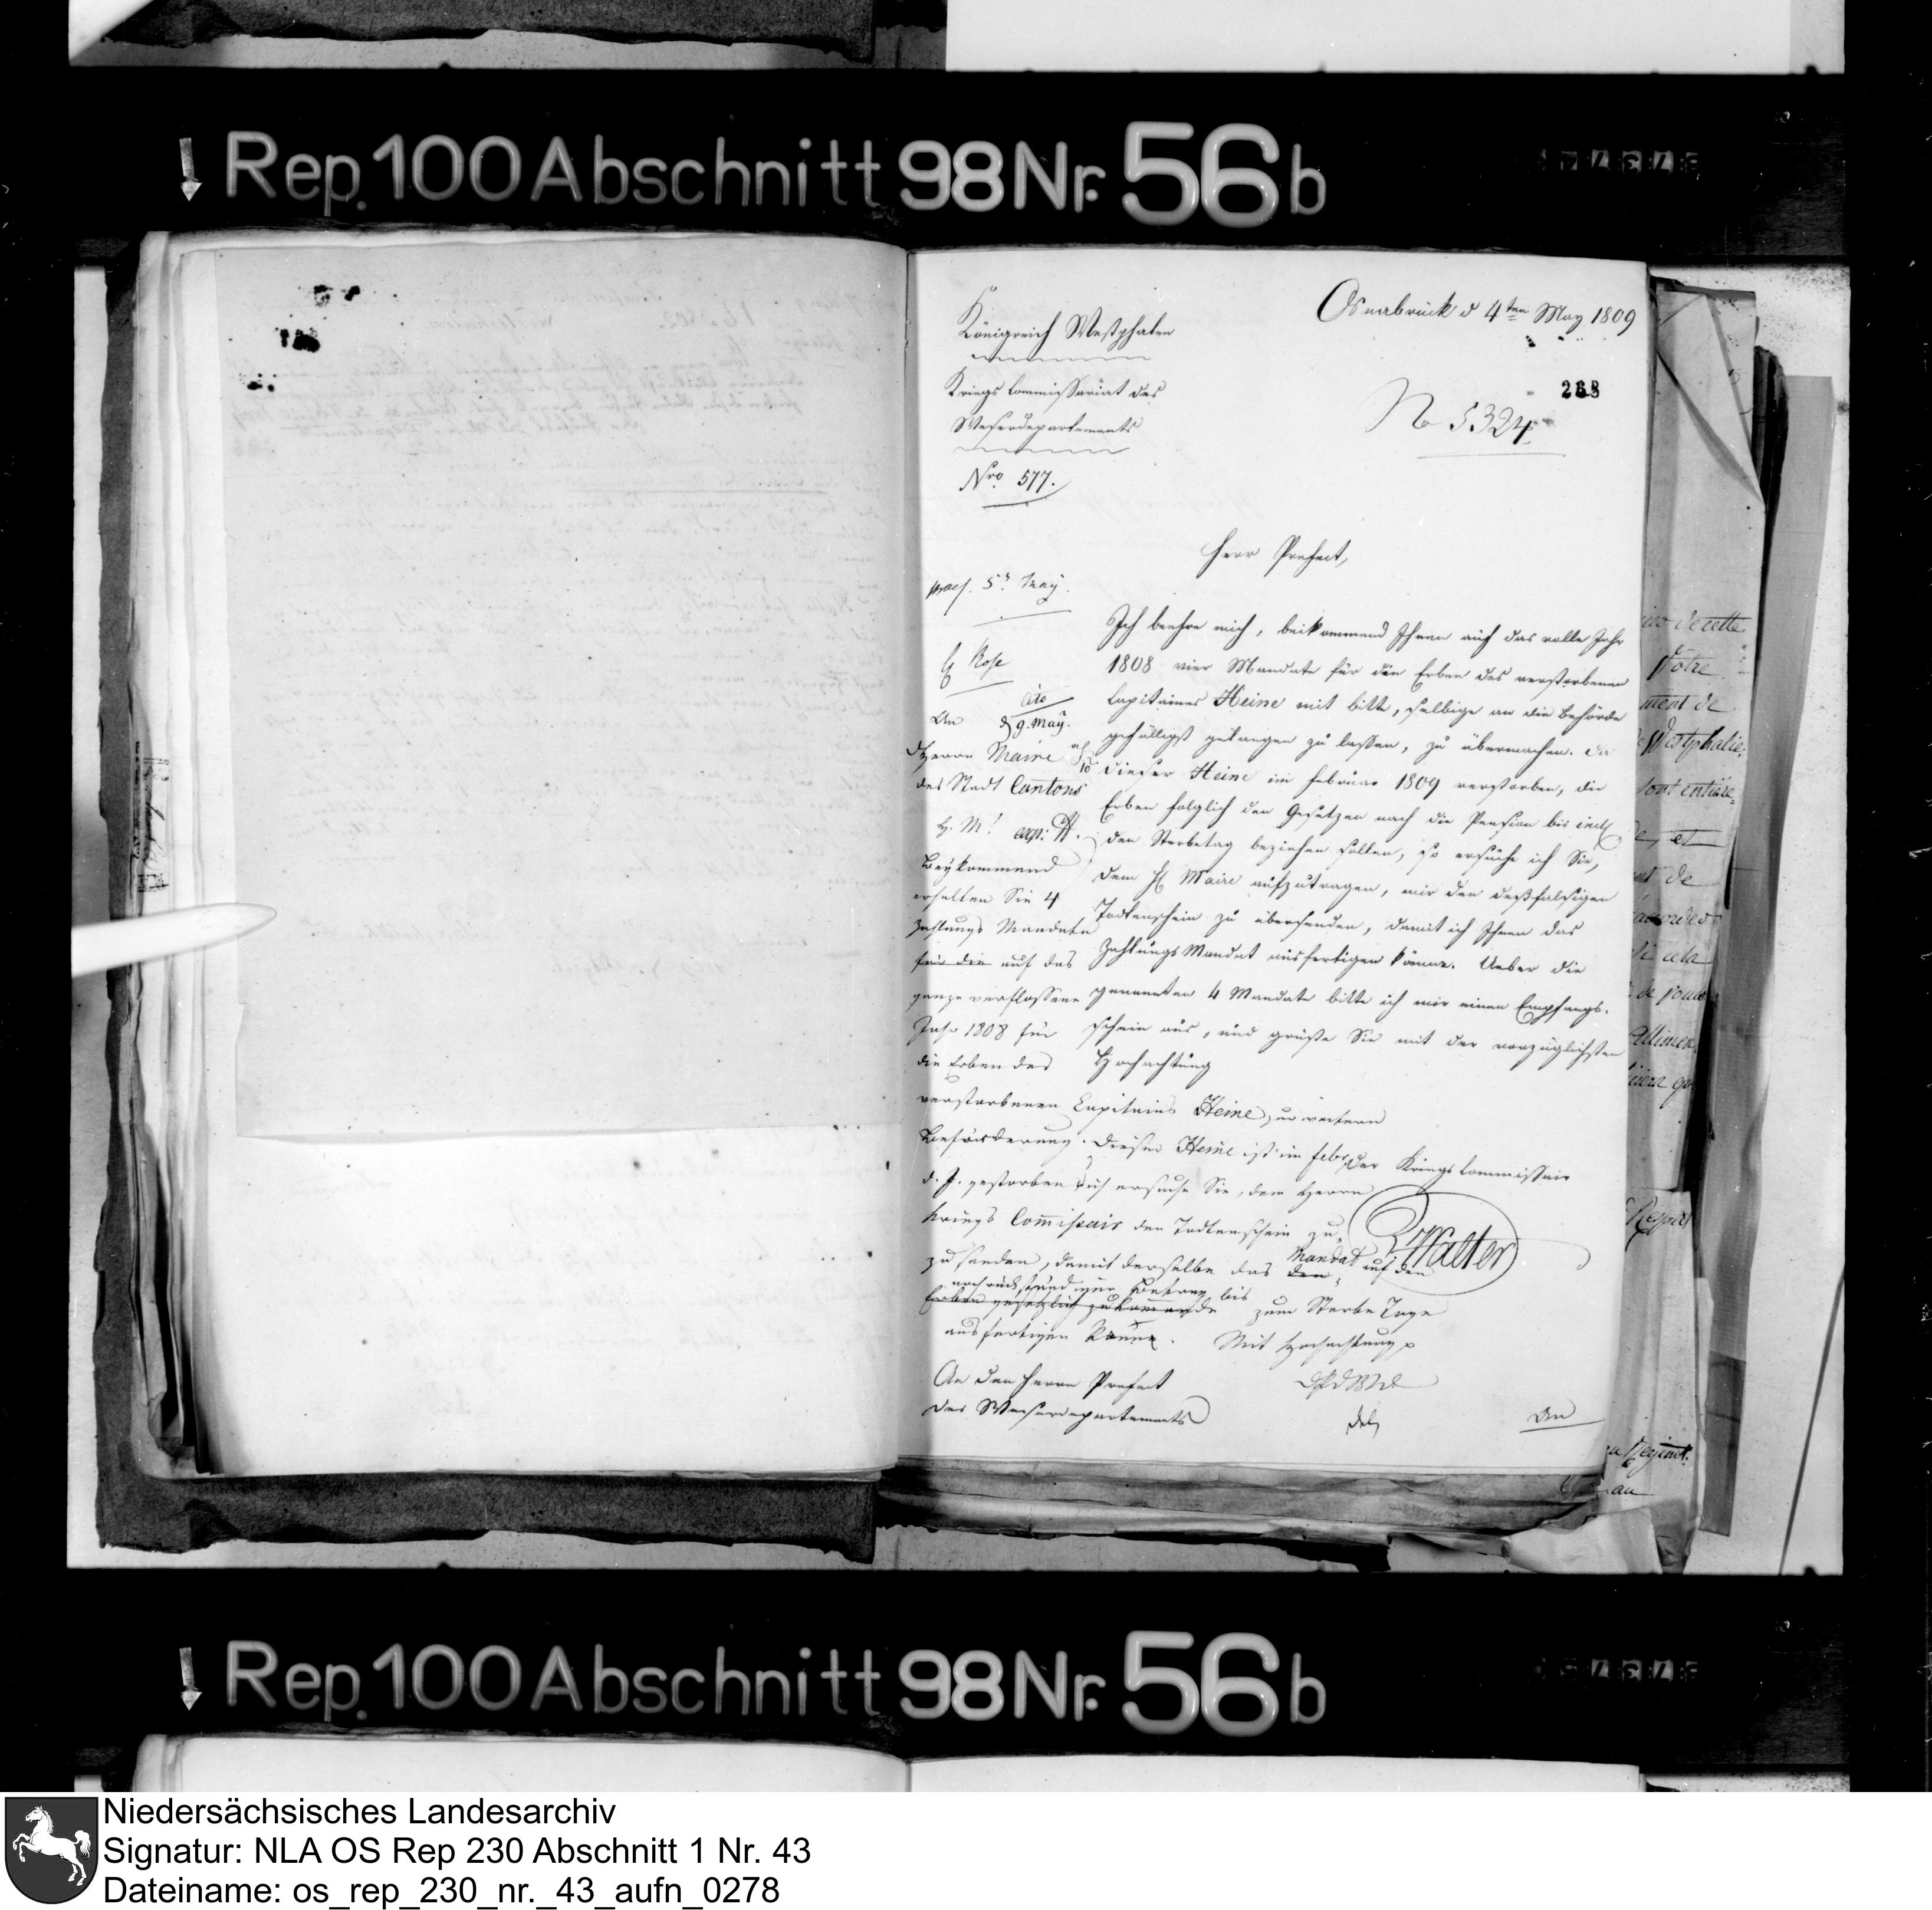 Rep. 100 Abschnitt 98 Nr. 56 b
Osnabrück d 4ten May 1809
Königreich Westphalen
Kriegs Commissariat des
Weserdepartements
Nro 577.
268
No 5324
Herr Prefect,
praes. 5t May.
Ich beehre mich, beikommend Ihnen auf das volle Jahr
1808 vier Mandate für die Erben des verstorbenen
Capitaines Heine mit bitte, selbige an die Behörde
gefälligst gelangen zu lassen, zu übermachen. Da
dieser Heine im Februar 1809 verstorben, die
Erben folglich den Gesetzen nach die Pension bis incl
den Sterbetag beziehen sollen, so ersuche ich Sie,
dem H Maire aufzutragen, mir den desfalsigen
Todtenschein zu übersenden, damit ich Ihnen das
Zahlungs Mandat ausfertigen könne. Ueber die
genannten 4 Mandate bitte ich mir einen Empfangs-
schein aus, und grüße Sie mit der vorzüglichsten
Hochachtung
der Kriegs Commissair
Walter
An den Herrn Prefect
des Weserdepartements
Rose
An
9. May.
Herrn Maire
der Stadt Cantons
H. M! exp:
Beykommend
erhalten Sie 4
Zahlungs Mandate
für die auf das
ganze verflossene
Jahr 1808 für
die Erben des
verstorbenen Capitains Heine zur weitern
Beförderung. Dieser Heine ist im Febr.
d. J. gestorben ich ersuche Sie, dem Herrn
Kriegs Commissair den Todtenschein zu-
zusenden, damit derselbe das den Mandat auf den
noch rückständigen Betrag bis
Erben gesetzlich zukommende zum Sterbe Tage
ausfertigen könne. Mit Hochachtung
An
Rep. 100 Abschnitt 98 Nr. 56 b
Niedersächsisches Landesarchiv
Signatur: NLA OS Rep 230 Abschnitt 1 Nr. 43
Dateiname: os_rep_230_nr._43_aufn_0278